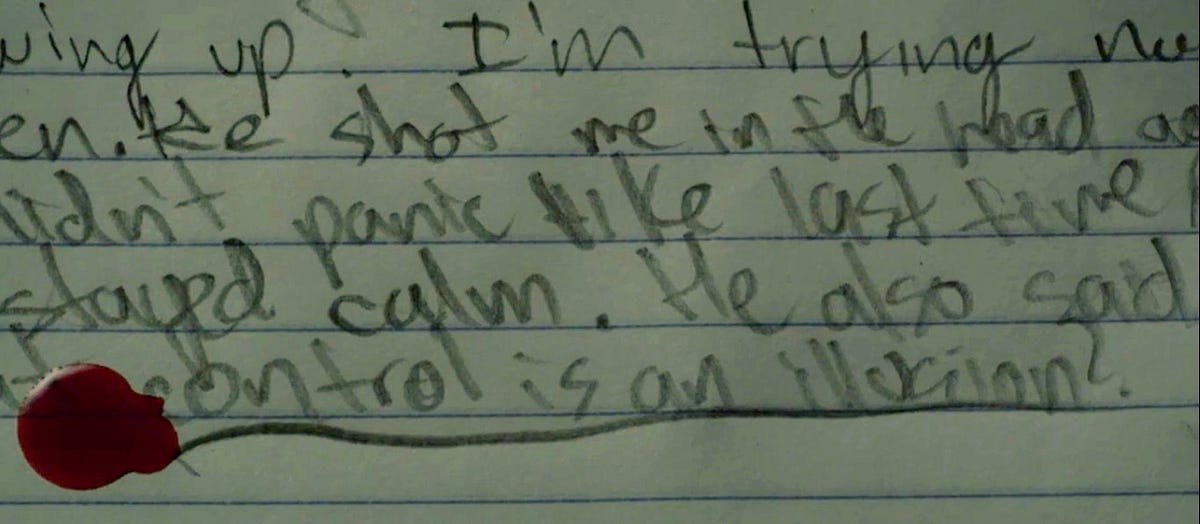 wing up? I'm trying
en. He shot me in the head
didn't panic like last time
stayed calm. He also said
control is an illusion?.